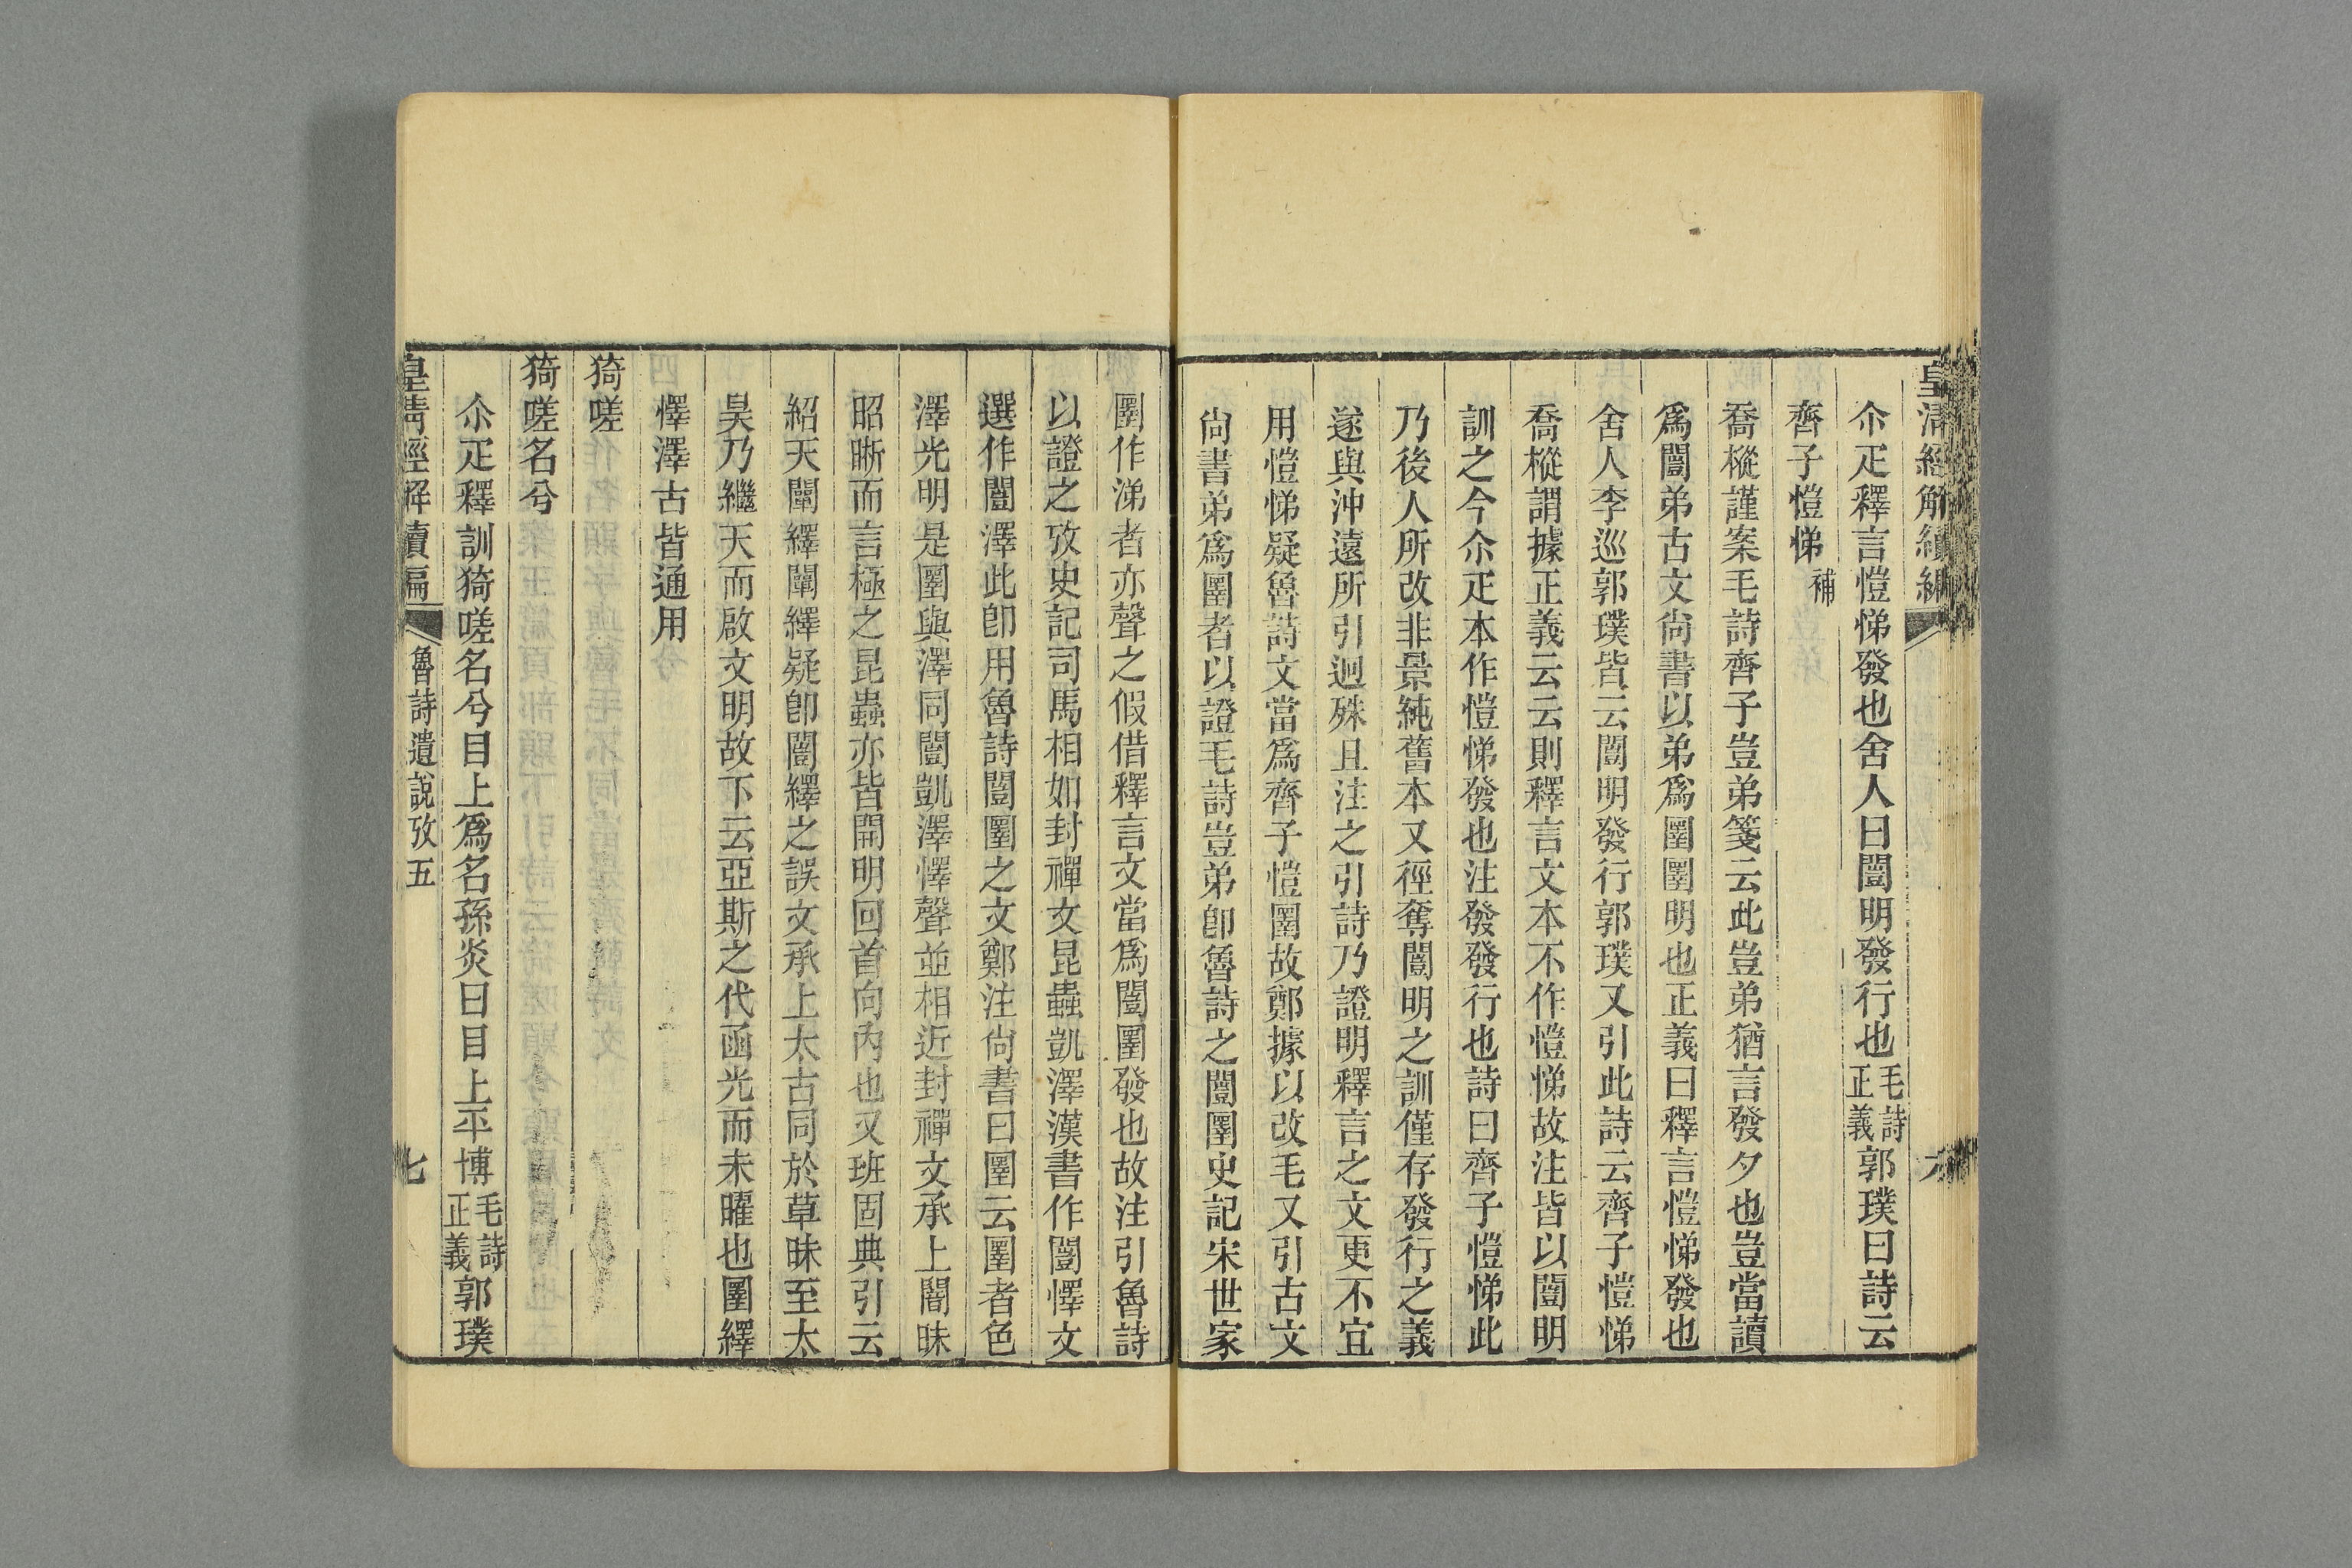 皇清經解續編
尒疋釋言愷悌發也舍人曰闓明發行也毛詩正義郭璞曰詩云
齊子愷悌補
喬樅謹案毛詩齊子豈弟箋云此豈弟猶言發夕也豈當讀
爲闓弟古文尚書以弟爲圛圛明也正義曰釋言愷悌發也
舍人李巡郭璞皆云闓明發行郭璞又引此詩云齊子愷悌
喬樅謂據正義云云則釋言文本不作愷悌故注皆以闓明
訓之今尒疋本作愷悌發也注發發行也詩曰齊子愷悌此
乃後人所改非景純舊本又徑奪闓明之訓僅存發行之義
遂與沖遠所引迥殊且注之引詩乃證明釋言之文更不宜
用愷悌疑魯詩文當爲齊子愷圛故鄭據以改毛又引古文
尚書弟爲圛者以證毛詩豈弟卽魯詩之闓圛史記宋世家
圛作涕者亦聲之假借釋言文當爲闓圛發也故注引魯詩
以證之攷史記司馬相如封禪文昆蟲凱澤漢書作闓懌文
選作闓澤此卽用魯詩闓圛之文鄭注尚書曰圛云圛者色
澤光明是圛與澤同闓凱澤懌聲並相近封禪文承上闇昧
昭晣而言極之昆蟲亦皆開明回首向內也又班固典引云
紹天闡繹闡繹疑卽闓繹之誤文承上太古同於草昧至太
昊乃繼天而啟文明故下云亞斯之代函光而未曜也圛繹
懌澤古皆通用
猗嗟
猗嗟名兮
尒疋釋訓猗嗟名兮目上爲名孫炎曰目上平博毛詩正義郭璞
皇清經解續編
魯詩遺說攷五
七